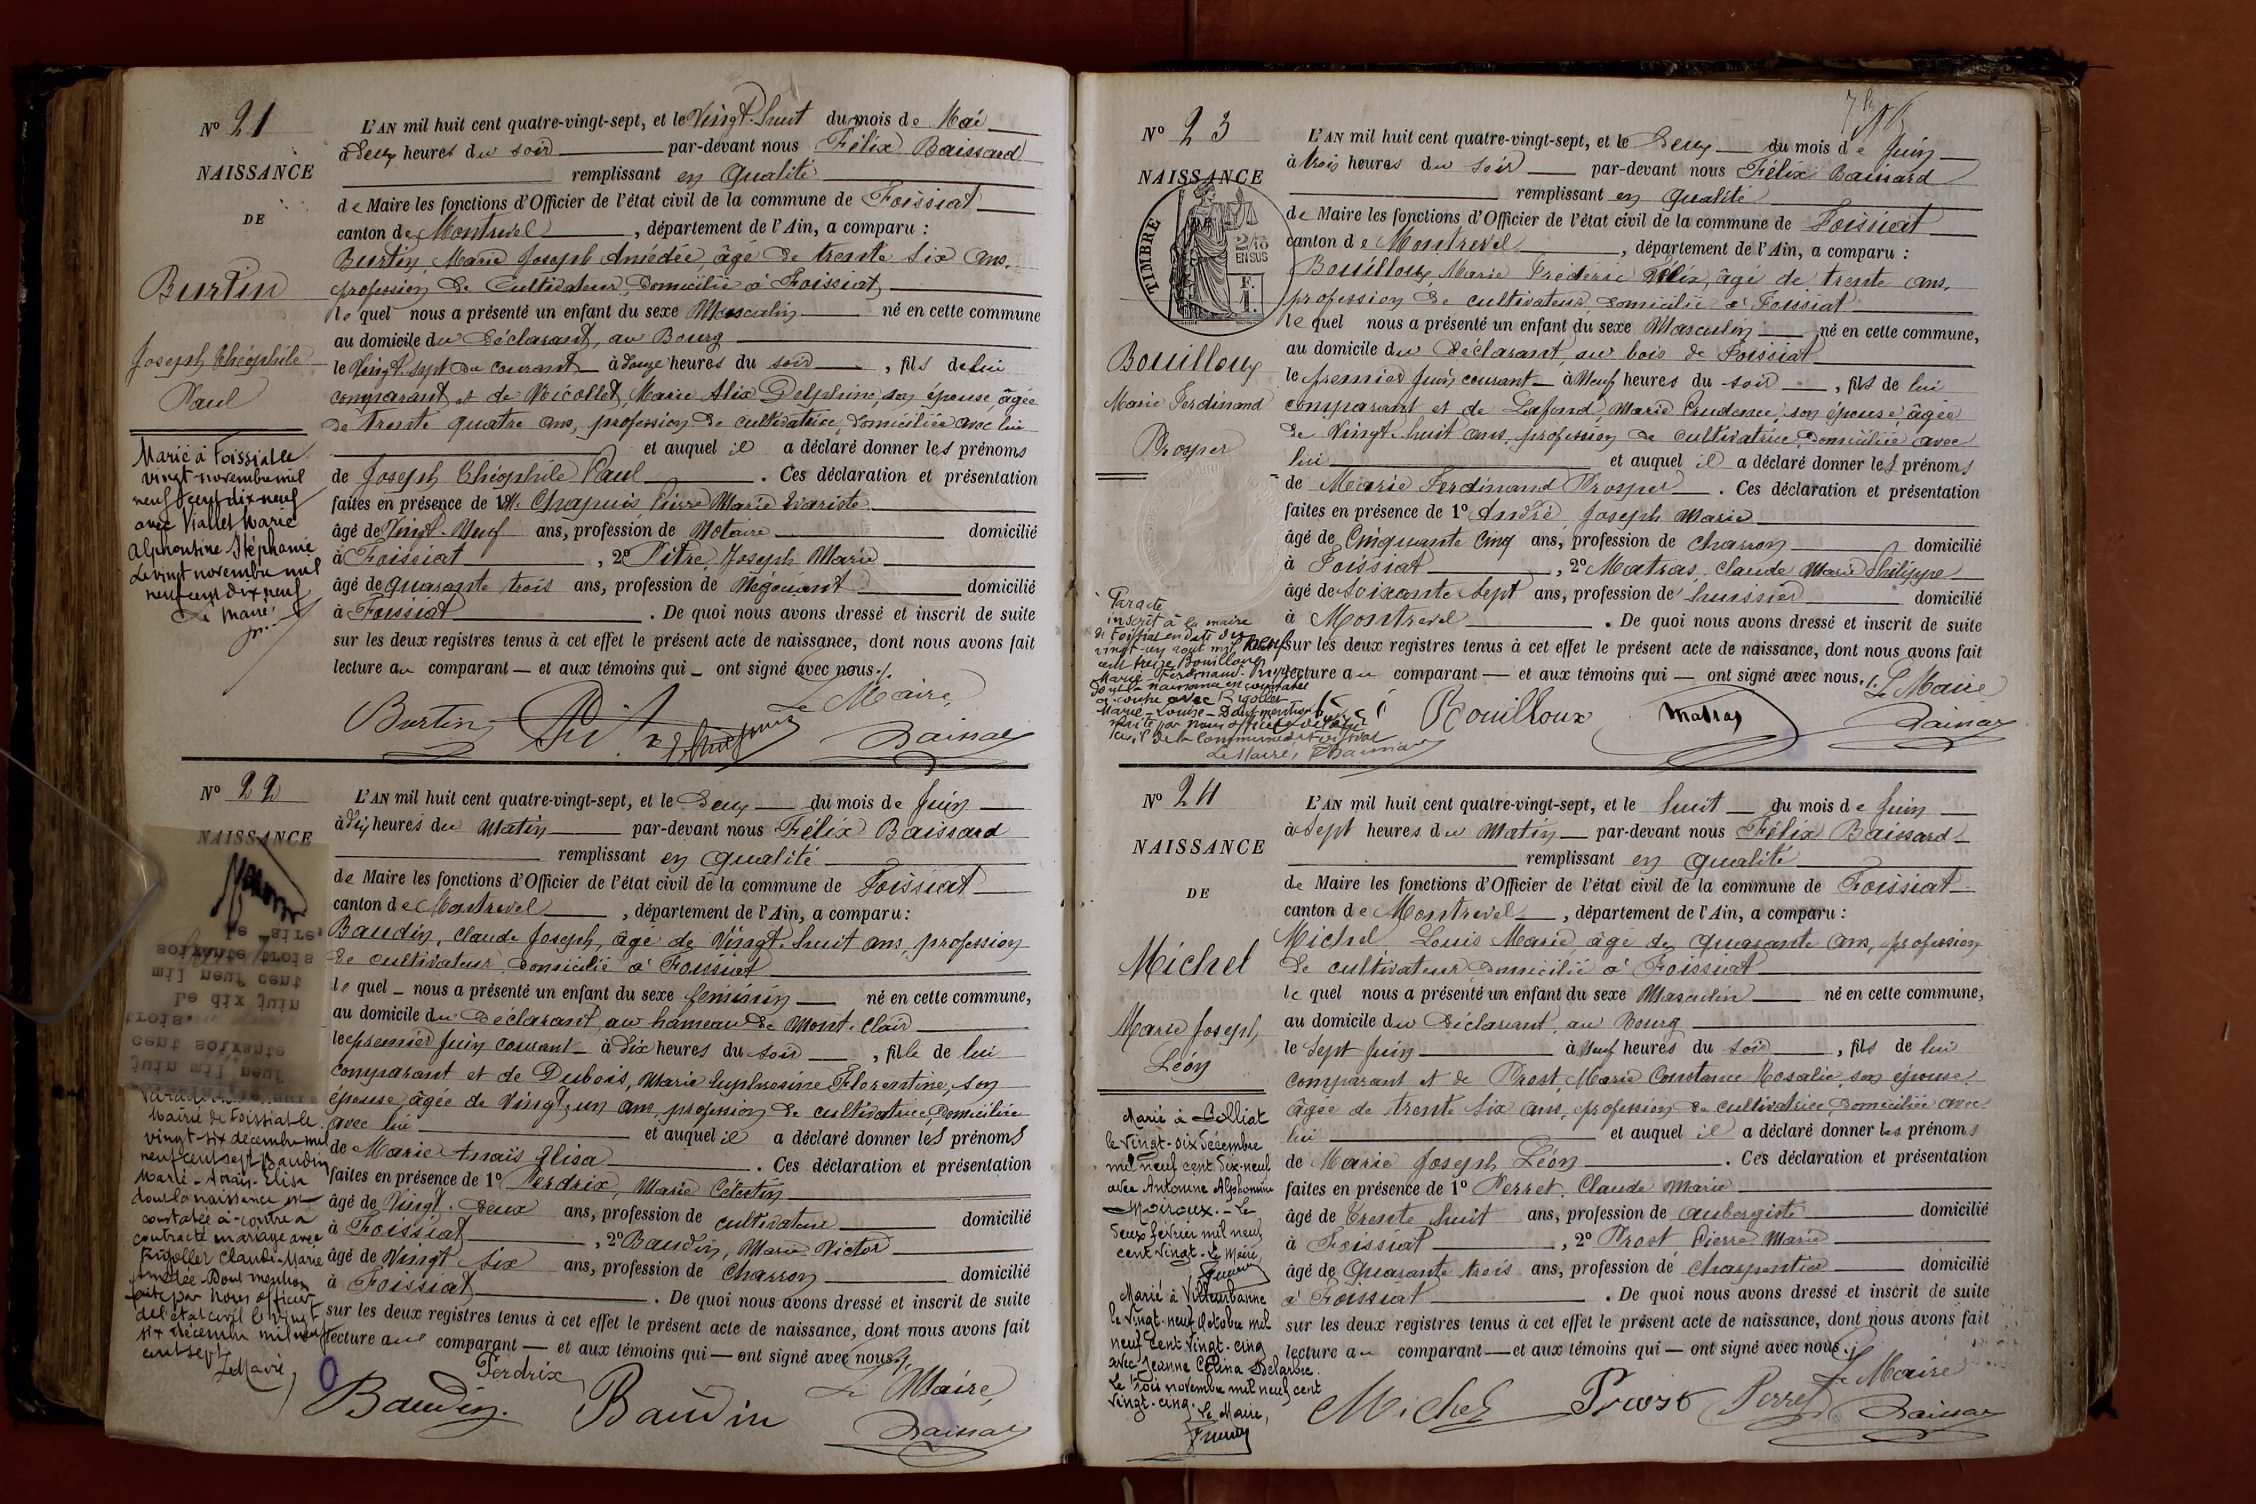 Nº 21
NAISSANCE
DE
Burtin
Joseph Théophile
Paul
Marié à Foissiat le
vingt novembre mil
neuf cent dix neuf
avec Viallet Marie
Alphonsine Stéphanie
Le vingt novembre mil
neuf cent dix neuf
Le Maire,
L'AN mil huit cent quatre-vingt-sept, et le Vingt-huit du mois de Mai
à Deux heures du soir par-devant nous Félix Baissard
remplissant en Qualité
de Maire les fonctions d'Officier de l'état civil de la commune de Foissiat
canton de Montrevel, département de l'Ain, a comparu :
Burtin, Marie Joseph Amédée, âgé de trente six ans,
profession de Cultivateur, domicilié à Foissiat
le quel nous a présenté un enfant du sexe Masculin né en cette commune
au domicile du Déclarant, au Bourg
le Vingt-sept du courant à douze heures du soir, fils de lui
comparant et de Nicollet, Marie Alix Delphine, son épouse, âgée
de trente quatre ans, profession de cultivatrice, domiciliée avec lui
et auquel il a déclaré donner les prénoms
de Joseph Théophile Paul. Ces déclaration et présentation
faites en présence de 1º M. Chapuis, Pierre Marie Evariste
âgé de Vingt-Neuf ans, profession de Notaire domicilié
à Foissiat, 2º Pitre, Joseph Marie
âgé de quarante trois ans, profession de Négociant domicilié
à Foissiat. De quoi nous avons dressé et inscrit de suite
sur les deux registres tenus à cet effet le présent acte de naissance, dont nous avons fait
lecture au comparant — et aux témoins qui — ont signé avec nous.
Le Maire,
Burtin
Nº 22
NAISSANCE
Le Maire,
soixante trois
mil neuf cent
Le dix juin
trois.
cent soixante
juin mil neuf
Mairie de Foissiat le
vingt-six décembre mil
neuf cent sept Baudin
Marie-Anaïs-Elisa
dont la naissance est
constatée ci-contre a
contracté mariage avec
Rigollet Claude-Marie
Amédée. Dont mention
faite par Nous officier
de l'état civil le vingt
six décembre mil neuf
cent sept
Le Maire,
L'AN mil huit cent quatre-vingt-sept, et le Deux du mois de Juin
à dix heures du Matin par-devant nous Félix Baissard
remplissant en Qualité
de Maire les fonctions d'Officier de l'état civil de la commune de Foissiat
canton de Montrevel, département de l'Ain, a comparu :
Baudin, Claude Joseph, âgé de Vingt-huit ans, profession
de cultivateur, domicilié à Foissiat
le quel — nous a présenté un enfant du sexe féminin né en cette commune,
au domicile du Déclarant, au hameau de Mont-Clair
le premier Juin courant à Dix heures du soir, fille de lui
comparant et de Dubois, Marie Euphrosine Florentine, son
épouse, âgée de Vingt-un ans, profession de cultivatrice, domiciliée
avec lui et auquel il a déclaré donner les prénoms
de Marie Anaïs Elisa. Ces déclaration et présentation
faites en présence de 1º Perdrix, Marie Célestin
âgé de Vingt-Deux ans, profession de cultivateur domicilié
à Foissiat, 2º Baudin, Marie Victor
âgé de Vingt six ans, profession de Charron domicilié
à Foissiat. De quoi nous avons dressé et inscrit de suite
sur les deux registres tenus à cet effet le présent acte de naissance, dont nous avons fait
lecture au comparant — et aux témoins qui — ont signé avec nous.
Perdrix
Le Maire,
Baudin
Baudin
Nº 23
NAISSANCE
DE
TIMBRE
2/10
EN SUS
F.
1.
Bouilloux
Marie Ferdinand
Prosper
Par acte
inscrit à la mairie
de Foissiat en date du
vingt-un août mil neuf
cent treize Bouilloux
Marie-Ferdinand-Prosper
dont la naissance est constatée
ci-contre avec Rigollet
Marie-Louise. Dont mention
faite par nous officier de l'état
civil de la commune de Foissiat
Le Maire,
L'AN mil huit cent quatre-vingt-sept, et le Deux du mois de Juin
à trois heures du soir par-devant nous Félix Baissard
remplissant en Qualité
de Maire les fonctions d'Officier de l'état civil de la commune de Foissiat
canton de Montrevel, département de l'Ain, a comparu :
Bouilloux, Marie Fréderic Félix, âgé de trente ans,
profession de cultivateur, domicilié à Foissiat
le quel nous a présenté un enfant du sexe Masculin né en cette commune,
au domicile du Déclarant, au bois de Foissiat
le premier Juin courant à Neuf heures du soir, fils de lui
comparant, et de Lafond, Marie Prudence, son épouse, âgée
de Vingt-huit ans, profession de cultivatrice, domiciliée avec
lui et auquel il a déclaré donner les prénoms
de Marie Ferdinand Prosper. Ces déclaration et présentation
faites en présence de 1º André, Joseph Marie
âgé de Cinquante Cinq ans, profession de Charron domicilié
à Foissiat, 2º Matras, Claude Marie Philippe
âgé de soixante sept ans, profession de huissier domicilié
à Montrevel. De quoi nous avons dressé et inscrit de suite
sur les deux registres tenus à cet effet le présent acte de naissance, dont nous avons fait
lecture au comparant — et aux témoins qui — ont signé avec nous.
Le Maire
Bouilloux
Matras
Nº 24
NAISSANCE
DE
Michel
Marie Joseph
Léon
Marié à Polliat
le vingt-six Décembre
mil neuf cent dix-neuf
avec Antonine Alphonsine
Moiroux. — Le
Deux février mil neuf
cent vingt. Le Maire
Marié à Villeurbanne
le vingt-neuf Octobre mil
neuf cent vingt-cinq
avec Jeanne Delarbre.
Le trois novembre mil neuf cent
vingt-cinq.
Le Maire,
L'AN mil huit cent quatre-vingt-sept, et le huit du mois de Juin
à sept heures du Matin par-devant nous Félix Baissard
remplissant en Qualité
de Maire les fonctions d'Officier de l'état civil de la commune de Foissiat
canton de Montrevel, département de l'Ain, a comparu :
Michel, Louis Marie, âgé de quarante ans, profession
de cultivateur, domicilié à Foissiat
le quel nous a présenté un enfant du sexe Masculin né en cette commune,
au domicile du Déclarant, au Bourg
le sept Juin à Neuf heures du soir, fils de lui
comparant et de Prost, Marie Constance Rosalie, son épouse,
âgée de trente six ans, profession de cultivatrice, domiciliée avec
lui et auquel il a déclaré donner les prénoms
de Marie Joseph Léon. Ces déclaration et présentation
faites en présence de 1º Perret, Claude Marie
âgé de trente huit ans, profession de aubergiste domicilié
à Foissiat, 2º Prost Pierre Marie
âgé de Quarante trois ans, profession de charpentier domicilié
à Foissiat. De quoi nous avons dressé et inscrit de suite
sur les deux registres tenus à cet effet le présent acte de naissance, dont nous avons fait
lecture au comparant — et aux témoins qui — ont signé avec nous.
Le Maire
Michel
Prost
Perret